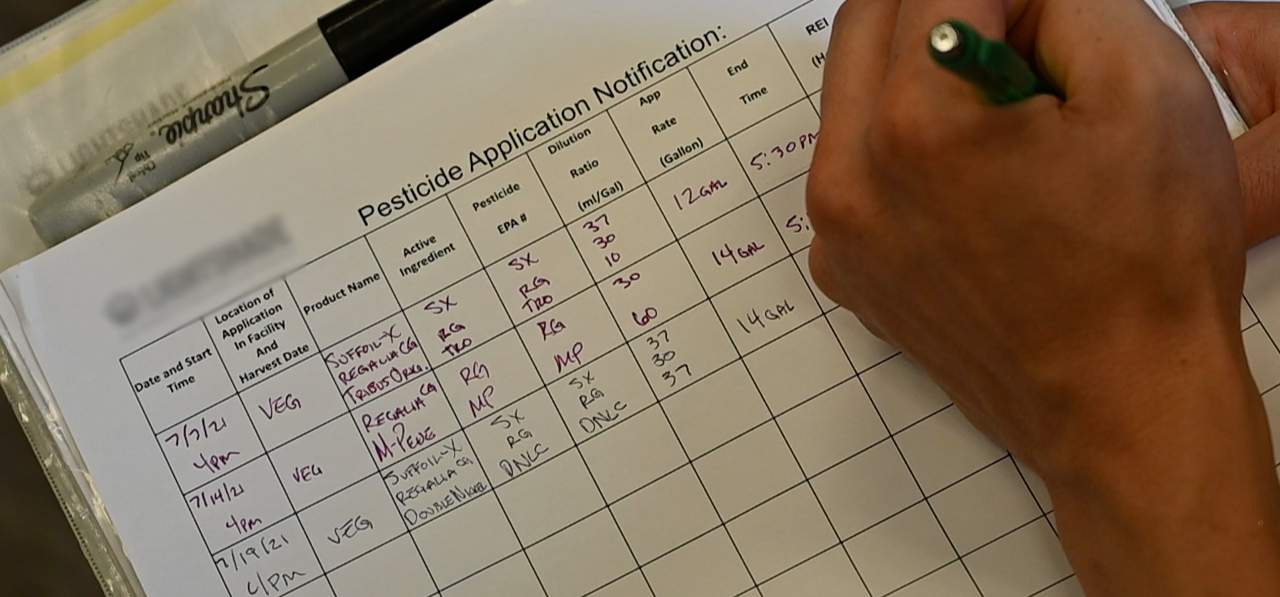 Sharpie
Pesticide Application Notification:
Date and Start
Time
Location of
Application
In Facility
And
Harvest Date
Product Name
Active
Ingredient
Pesticide
EPA #
Dilution
Ratio
(ml/Gal)
App
Rate
(Gallon)
End
Time
REI
7/7/21
4pm
VEG
SUFFOIL-X
REGALIA CG
TRIBUS ORIG.
SX
RG
TRO
SX
RG
TRO
37
30
10
12 GAL
5:30 PM
7/14/21
4pm
VEG
REGALIA CG
M-PEDE
RG
MP
RG
MP
30
60
14 GAL
5:
7/19/21
4PM
VEG
SUFFOIL-X
REGALIA CG
DOUBLE NICKEL
SX
RG
DNLC
SX
RG
DNLC
37
30
37
14 GAL